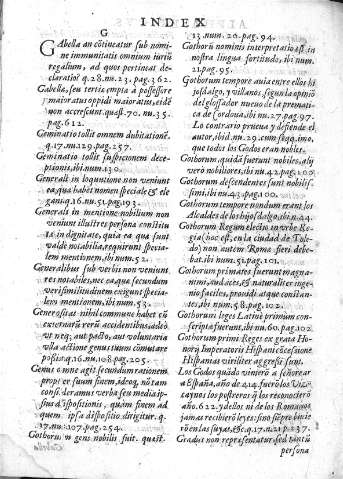 INDEX
G
GAbella an cōtineatur sub nomi
ne immunitatis omnium iuriū
regalium, ad quos pertineat de
claratio? q.28.nu.23.pag.362.
Gabella, seu tertia empta à possessore
maioratus oppidi maioratus, eidē
non accrescunt. quæst.70. nu.35.
pag.612.
Geminatio tollit omnem dubitationē.
q.17.nu.129.pag.257.
Geminatio tollit suspicionem dece-
ptionis, ibi num.130.
Generali in loquutione non veniunt
ea quæ habet nomen speciale
gan. q.16.nu.51.pag.193.
Generali in mentione nobilium non
veniunt illustres persona
in dignitate, quia ea quæ sunt
valdè notabilia, requirunt specia-
lem mentionem, ibi nu.52.
Generalibus sub verbis non veniunt
res notabiles, nec ea quæ secundum
verisimilitudinem exigunt specia-
lem mentionem, ibi num.53.
Generositas nihil commune habet cū
externarū rerū accidentibus,
vt neq; aut pacto, aut voluntaria
vlla actione genus suum
q.16.nu.108.pag.205.
Genus omne agit secundum rationem
propter suum finem, ideoq, nō tam
consideramus verba seu media ip-
sius dispositionis, quam finem ad
quem ipsa dispositio dirigitur. q.
17.nu.107.pag.254.
Gothorum gens nobilis fuit. quæst.
13.num.20.pag.94.
Gothorū nominis interpretatio
nostra sortiendo, ibi num.
21.pag.95.
Gothorum tempore auia entre ellos hi
josdalgo, y villanos, segun la opiniō
del glossador nueuo de la prematii
ca de Cordoua, ibi nu.27.pag.97.
Lo contrario prueua y defiende el
autor, ibid.nu.29. cum seqq. imo,
que todos los Godos eran nobles.
Gothorum, quidā fuerunt nobiles, alij
verò nobiliores, ibi nu.42.pag.100.
Gothorum descendentes sunt nobilis-
simi, ibi nu.43.pag.100.
Gothorum tempore nondum erant los
Alcaldes de los hijosdalgo, ibi n.44.
Gothorum Regum electio in vrbe Re-
gia (hoc est, en la ciudad de Tole-
do) non autem Romæ fieri debe-
bat, ibi nu.51.
Gothorum primates fuerunt magna-
nimi, audaces, & naturaliter inge-
nio faciles, prouidi atque constan-
tes, ibi num.58.pag.102.
Gothorum leges Latinè primùm con-
scriptæ fuerunt, ibi nu.60.pag.102.
Gothorum primi Reges ex grata Ho-
norij Imperatoris Hispaniæ
Hispanias viriliter aggressi sunt.
Los Godos quādo vinierō a señorear
a España, año de 414. fuerō los
zaynos los postreros q̄ los reconocierō
año.622. y dellos ni de los Romanos
jamas recibierō leyes: sino
rō en las suyas, &c. q.17.n.21.p.237.
Gradus non representatur, sed tantū
persona